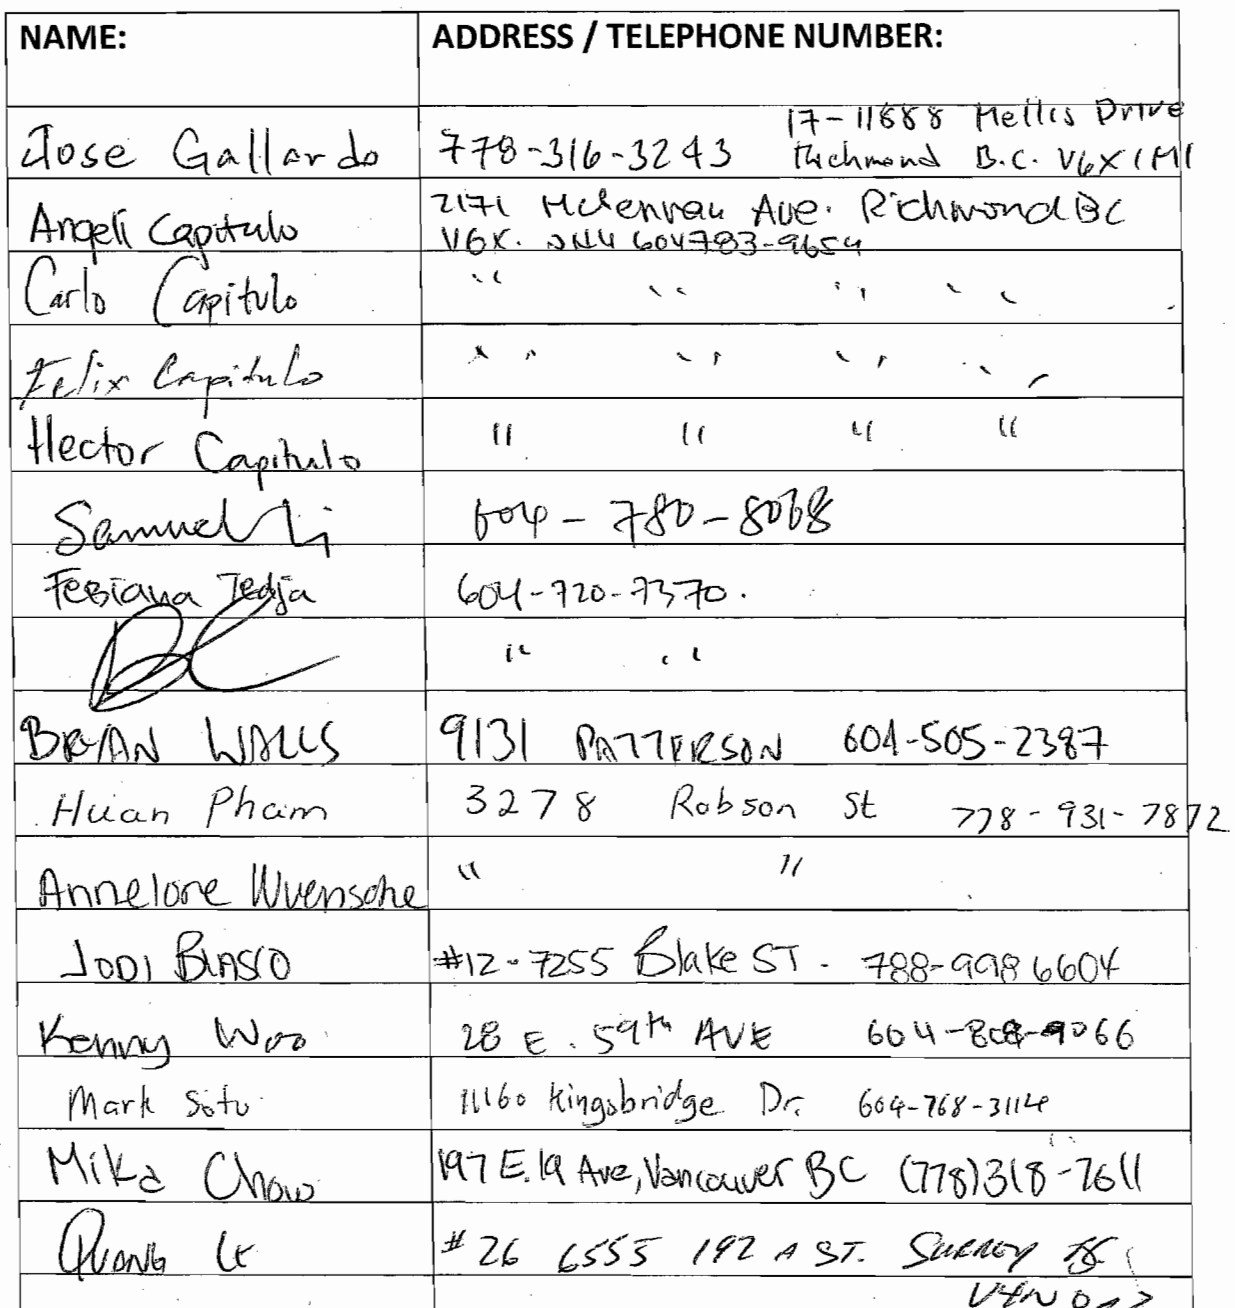 NAME: ADDRESS / TELEPHONE NUMBER:
Jose Gallardo 778-316-3243 17-11888 Mellis Drive
Richmond B.C. V6X 1M1
Angeli Capitulo 2171 Ave. Richmond BC
V6X. 604783-9654
Carlo Capitulo " " " "
Felix Capitulo " " " "
Hector Capitulo " " " "
Samuel Li 604-780-8068
Febiana Tedja 604-720-7370.
" "
BRIAN WALLS 9131 PATTERSON 604-505-2387
Huan Pham 3278 Robson St 778-931-7872
Annelore Wuensche " "
JODI BLASCO #12-7255 Blake ST. 788-998 6604
Kenny Woo 28 E. 59th AVE 604-808-9066
Mark Situ 11160 Kingsbridge Dr. 604-768-3114
Mika Chow 197 E. 19 Ave, Vancouver BC (778)318-7611
QUANG LE #26 6555 192 A ST. SURREY BC